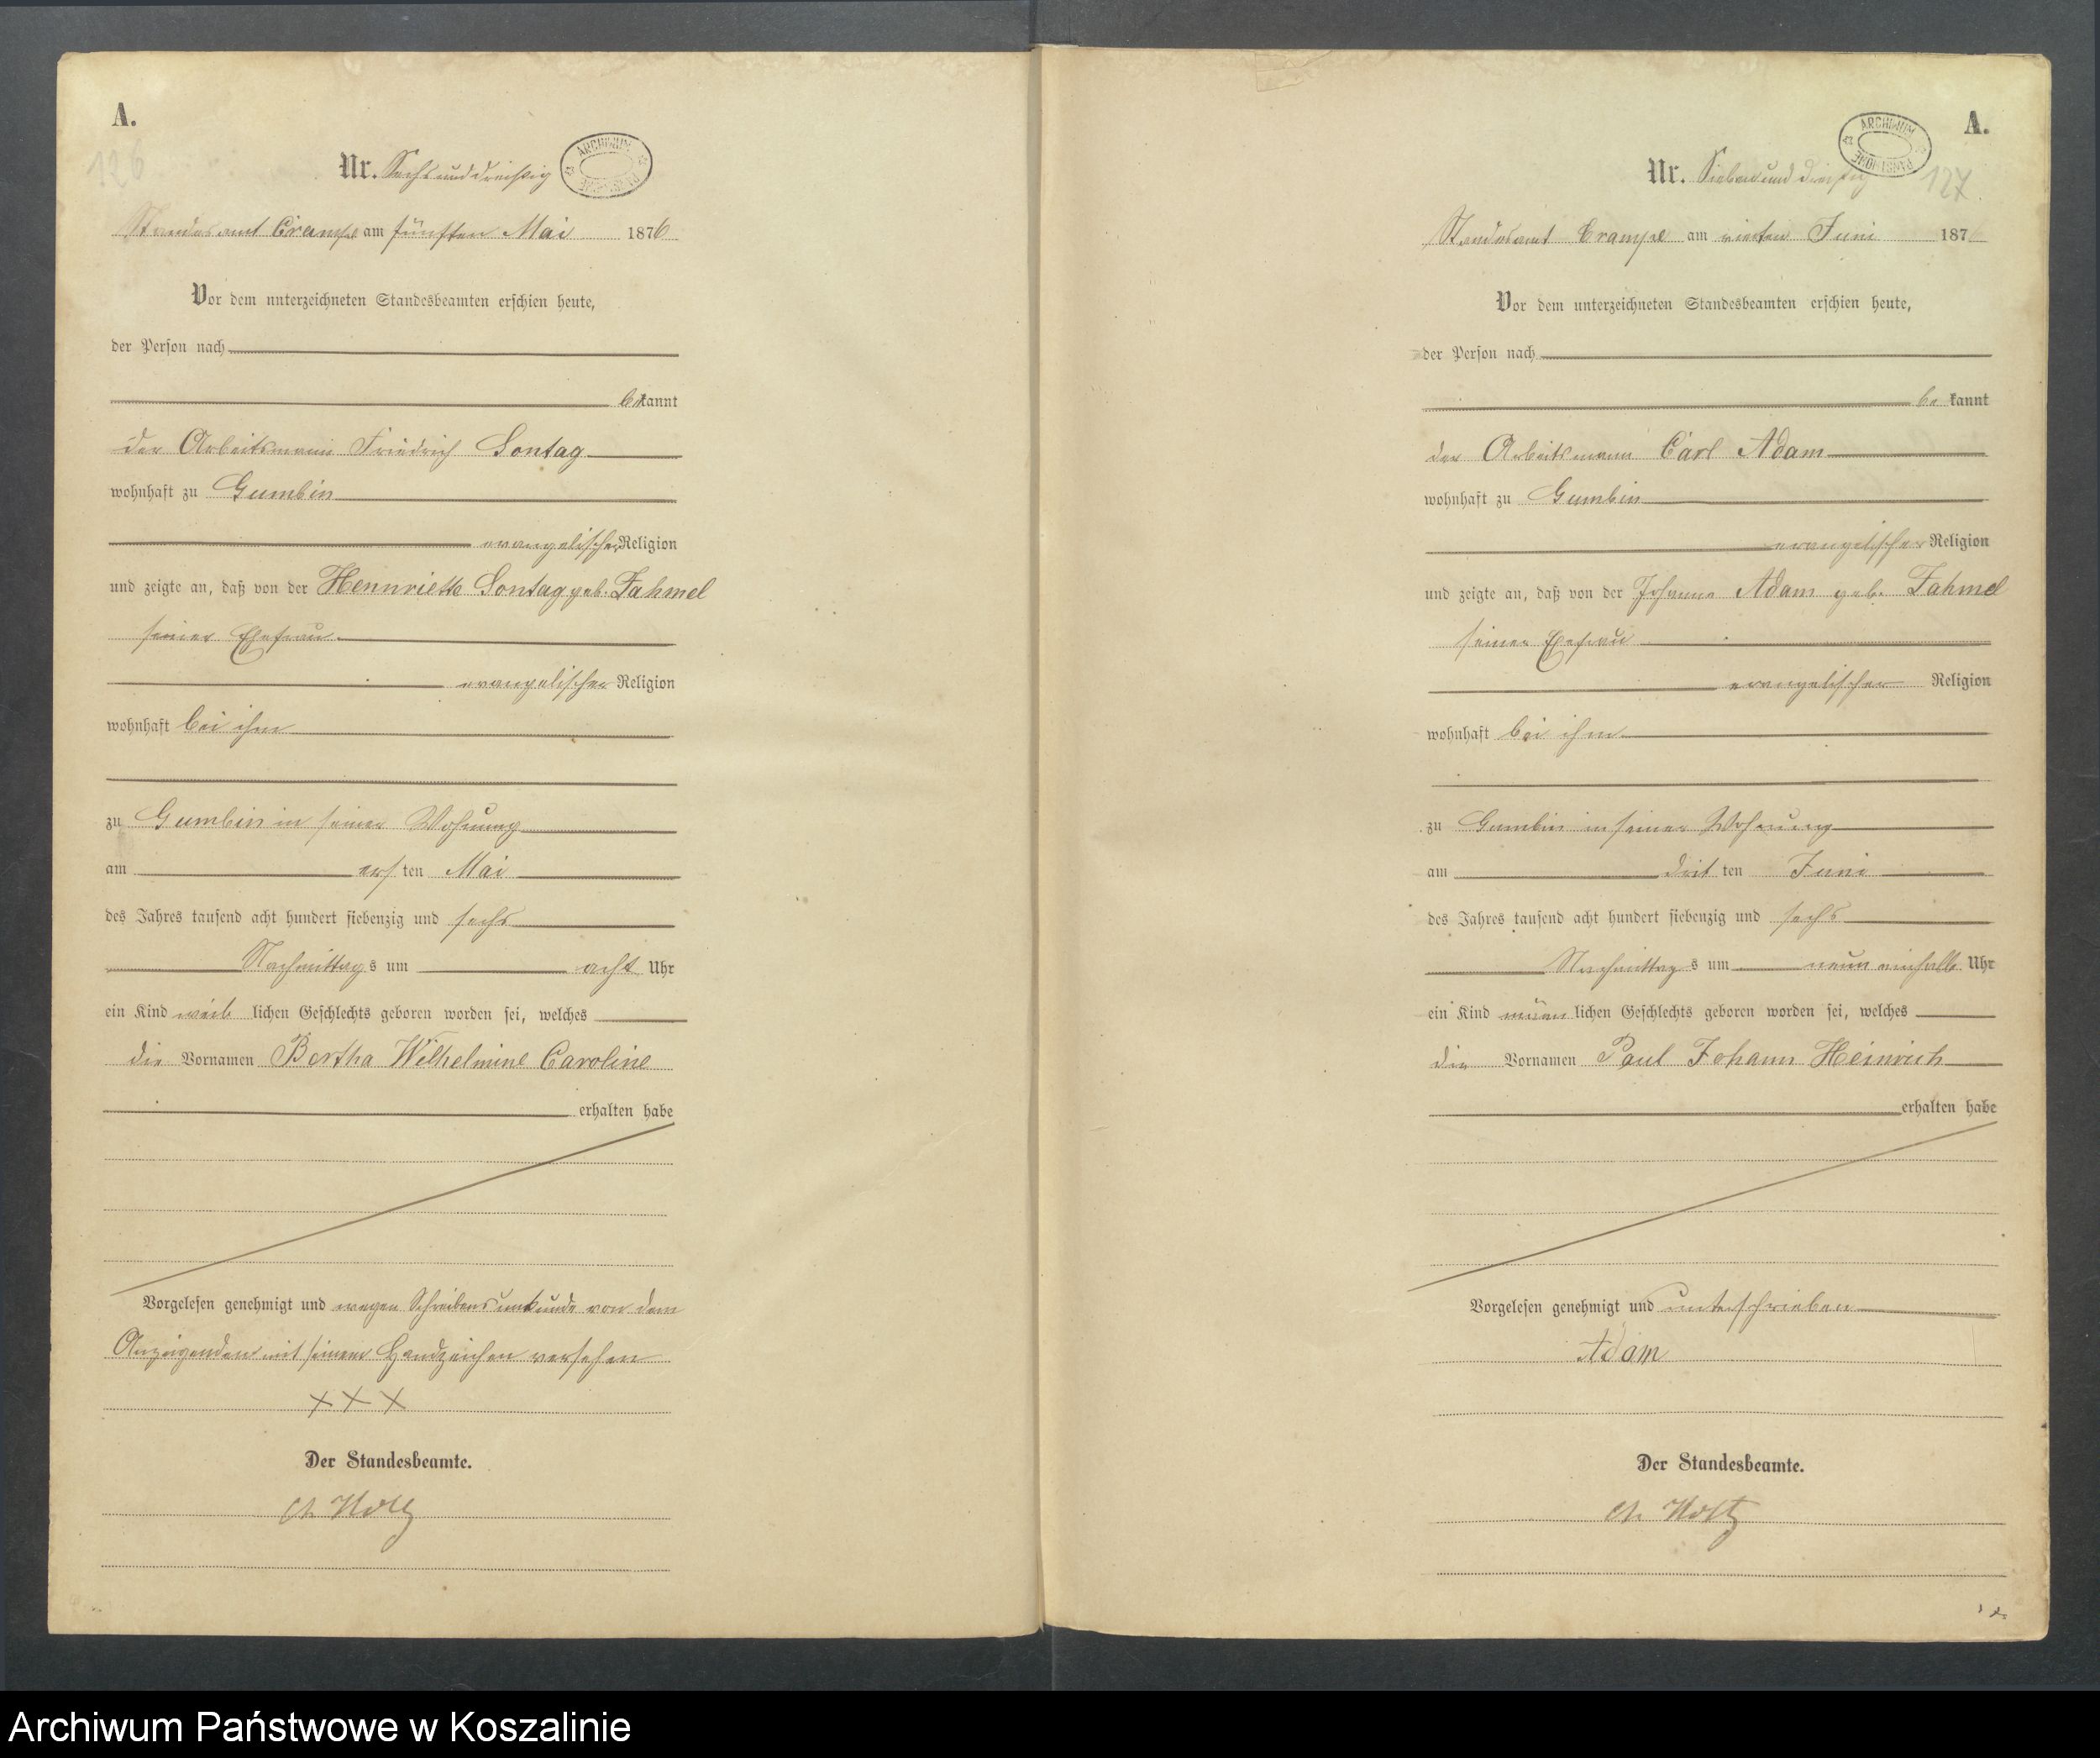 A.
126
Nr. Sechsunddreißig
ARCHIWUM
Standesamt Crampe am fünften Mai 1876
Vor dem unterzeichneten Standesbeamten erschien heute,
der Person nach
bekannt
der Arbeitsmann Friedrich Sontag
wohnhaft zu Gumbin
evangelischer Religion
und zeigte an, daß von der Hennriette Sontag geb. Fahmel
seiner Ehefrau
evangelischer Religion
wohnhaft bei ihm
zu Gumbin in seiner Wohnung
am ersten Mai
des Jahres tausend acht hundert siebenzig und sechs
Nachmittags um acht Uhr
ein Kind weiblichen Geschlechts geboren worden sei, welches
die Vornamen Bertha Wilhelmine Caroline
erhalten habe
Vorgelesen genehmigt und wegen Schreibensunkunde von dem
Anzeigenden mit seinem Handzeichen versehen
XXX
Der Standesbeamte.
Holtz
A.
127
Nr. Sieben und dreißig
ARCHIWUM PAŃSTWOWE
Standesamt Crampe am vierten Juni 187
Vor dem unterzeichneten Standesbeamten erschien heute,
der Person nach
bekannt
der Arbeitsmann Carl Adam
wohnhaft zu Gumbin
evangelischer Religion
und zeigte an, daß von der Johanne Adam geb. Fahmel
seiner Ehefrau
evangelischer Religion
wohnhaft bei ihm
zu Gumbin in seiner Wohnung
am dritten Juni
des Jahres tausend acht hundert siebenzig und sechs
Nachmittags um neun einhalb Uhr
ein Kind männlichen Geschlechts geboren worden sei, welches
die Vornamen Paul Johann Heinrich
erhalten habe
Vorgelesen genehmigt und unterschrieben
Adam
Der Standesbeamte.
Holtz
Archiwum Państwowe w Koszalinie